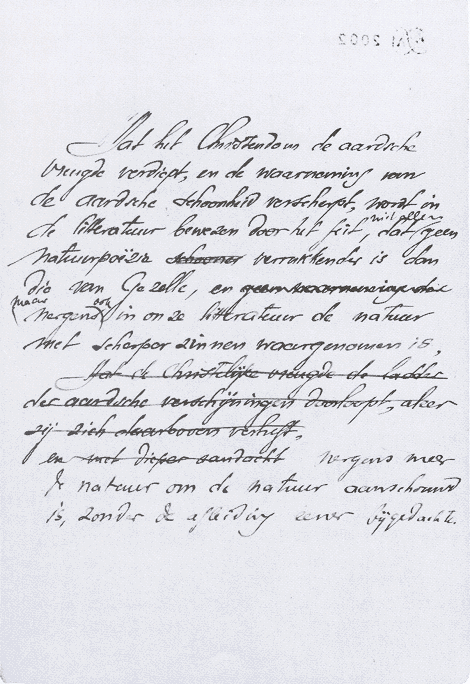 Dat het Christendom de aardsche
vreugde verdiept, en de waarneming van
de aardsche schoonheid verscherpt, wordt in
niet alleen
de litteratuur bewezen door het feit, dat geen
natuurpoëzie schooner verrukkender is dan
die van Gezelle, en geen waarneming der
maar ook
nergens in onze litteratuur de natuur
met scherper zinnen waargenomen is,
Dat de Christelijke vreugde de ladder
der aardsche verschijningen doorloopt, alser
zij zich daarboven verheft,
en met dieper aandacht nergens meer
de natuur om de natuur aanschouwd
is, zonder de afleiding eener bijgedachte.